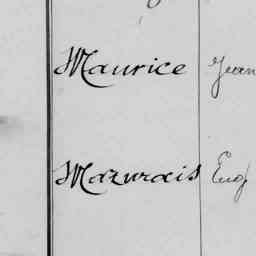 Maurice Jean
Mazurais Eug